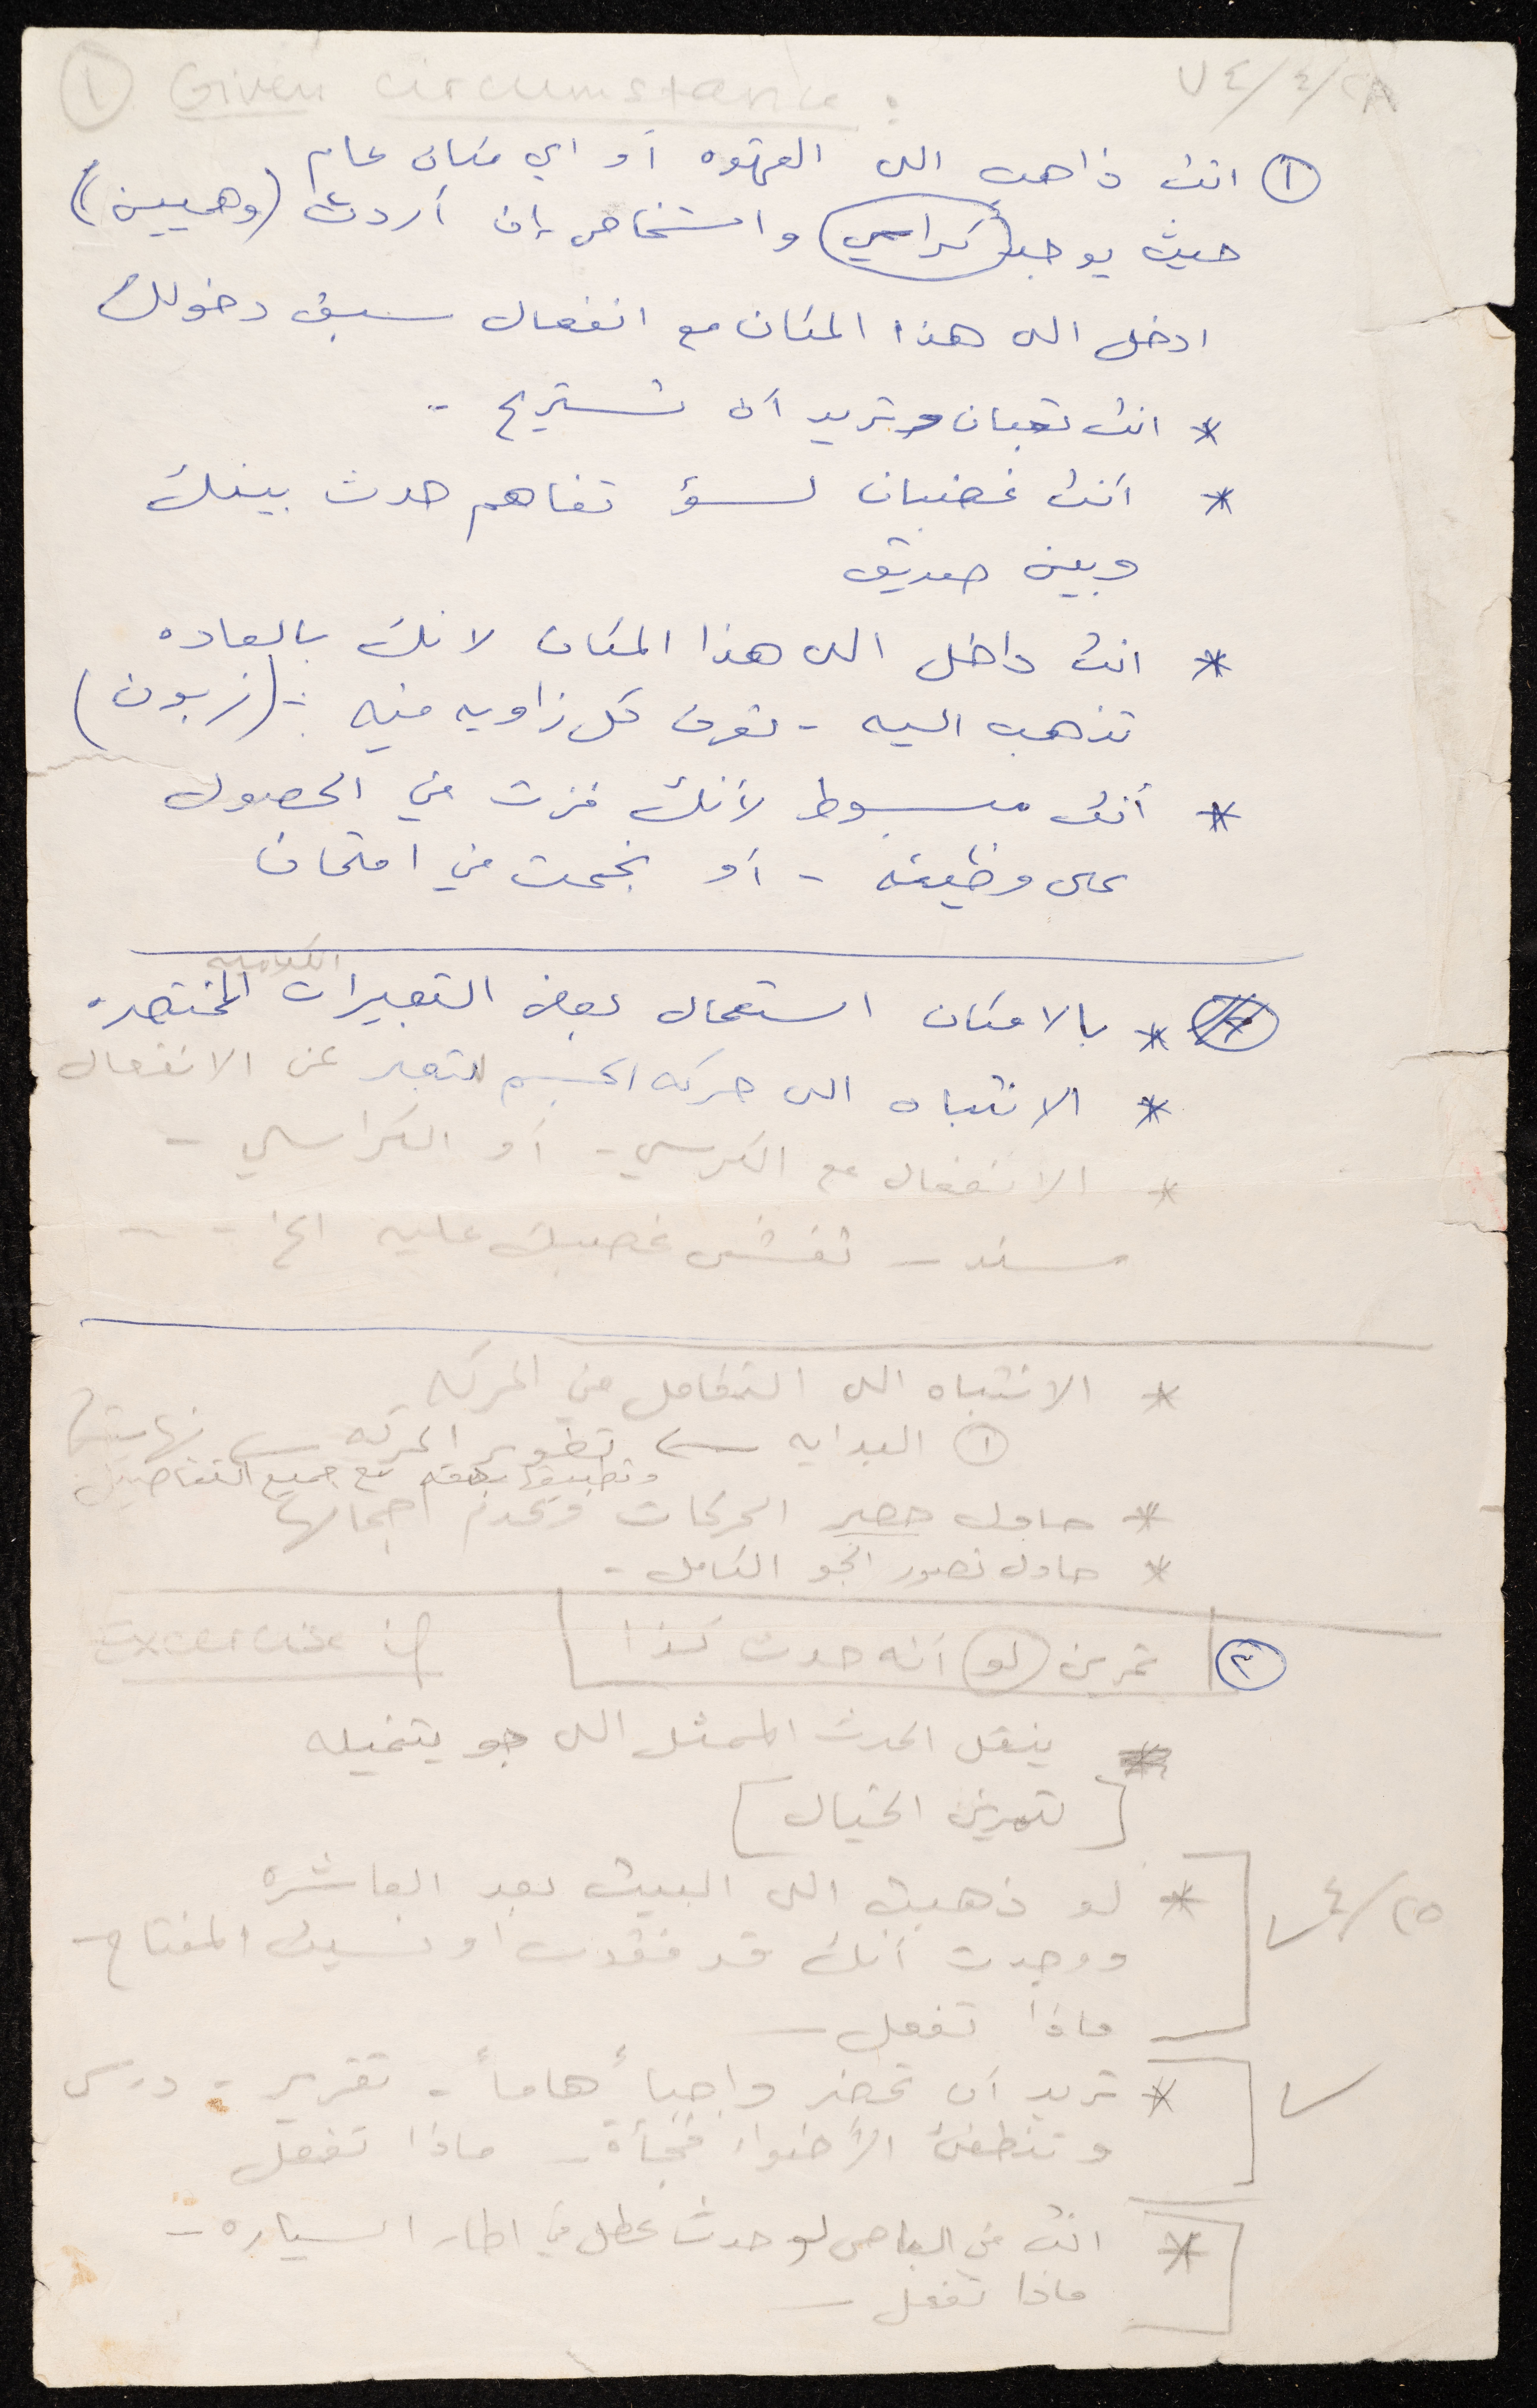 ١ Given circumstance : ٧٤/٤/٢٨
١ انت ذاهب الى القهوه أو اي مكان عام
حيث يوجد كراسي واشخاص إن أردت (وهميين)
ادخل الى هذا المكان مع انفعال سبق دخولك
* انت تعبان وتريد أن تستريح -
* أنت غضبان لسؤ تفاهم حدث بينك
وبين صديق
* انت داخل الى هذا المكان لانك بالعاده
تذهب اليه - تعرف كل زاويه فيه - (زبون)
* أنت مبسوط لأنك فزت في الحصول
على وظيفه - أو نجحت في امتحان
الكلاميه
* بالامكان استعمال بعض التعبيرات المختصره
* الانتباه الى حركه الجسم لتعبر عن الانفعال
* الانفعال مع الكرسي - أو الكراسي -
سند - تفش غضبك عليه الخ - -
* الانتباه الى التكامل في الحركه
١ البدايه ← تطوير الحركه ← نهايتها
وتطبيقها بدقه مع جميع التفاصيل
* حاول حصر الحركات وعدم اجمالها
* حاول تصور الجو الكامل -
٢ تمرين لو أنه حدث كذا if exercise
ينقل الحدث الممثل الى جو يتخيله
[لتمرين الخيال]
* لو ذهبت الى البيت بعد العاشره ٤/٢٥
ووجدت أنك قد فقدت او نسيت المفتاح -
ماذا تفعل -
* تريد أن تحضر واجباً هاماً - تقرير - درس
وتنطفئ الأضواء فجأة - ماذا تفعل
* انت في الباص لو حدث عطل في اطار السياره -
ماذا تفعل -